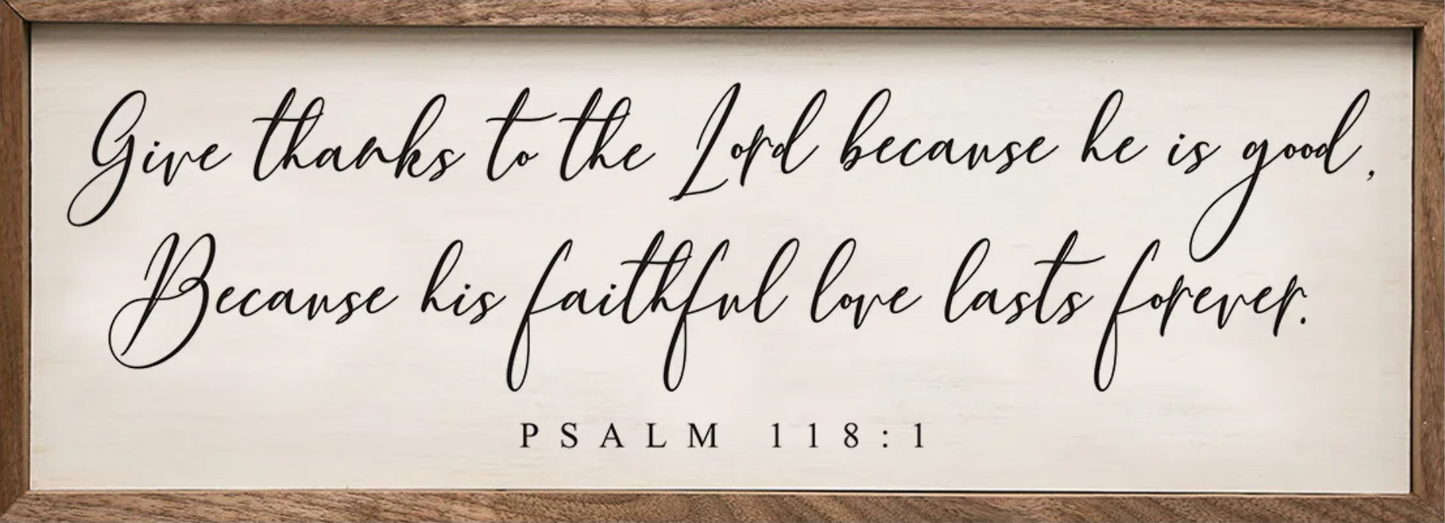 Give thanks to the Lord because he is good,
Because his faithful love lasts forever.
PSALM 118:1